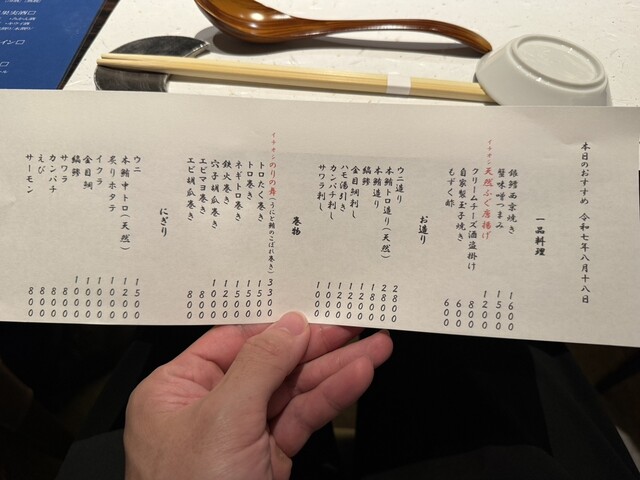 本日のおすすめ 令和七年八月十八日
一品料理
銀鱈西京焼き 1600
蟹味噌つまみ 1500
イチオシ 天然ふぐ唐揚げ 1200
クリームチーズ酒盗掛け 800
自家製玉子焼き 600
もずく酢 600
お造り
ウニ造り 2800
本鮪トロ造り(天然) 2800
本鮪造り 1800
縞鯵 1200
金目鯛刺し 1200
ハモ湯引き 1200
カンパチ刺し 1000
サワラ刺し 1000
巻物
イチオシ のりの舞(うにと鮪のこぼれ巻き) 3300
トロたく巻き 1500
トロ巻き 1500
ネギトロ巻き 1500
鉄火巻き 1200
穴子胡瓜巻き 1000
エビマヨ巻き 800
エビ胡瓜巻き 800
にぎり
ウニ 1500
本鮪中トロ(天然) 1200
炙りホタテ 1000
イクラ 1000
金目鯛 1000
縞鯵 1000
サワラ 800
カンパチ 800
えび 800
サーモン 800